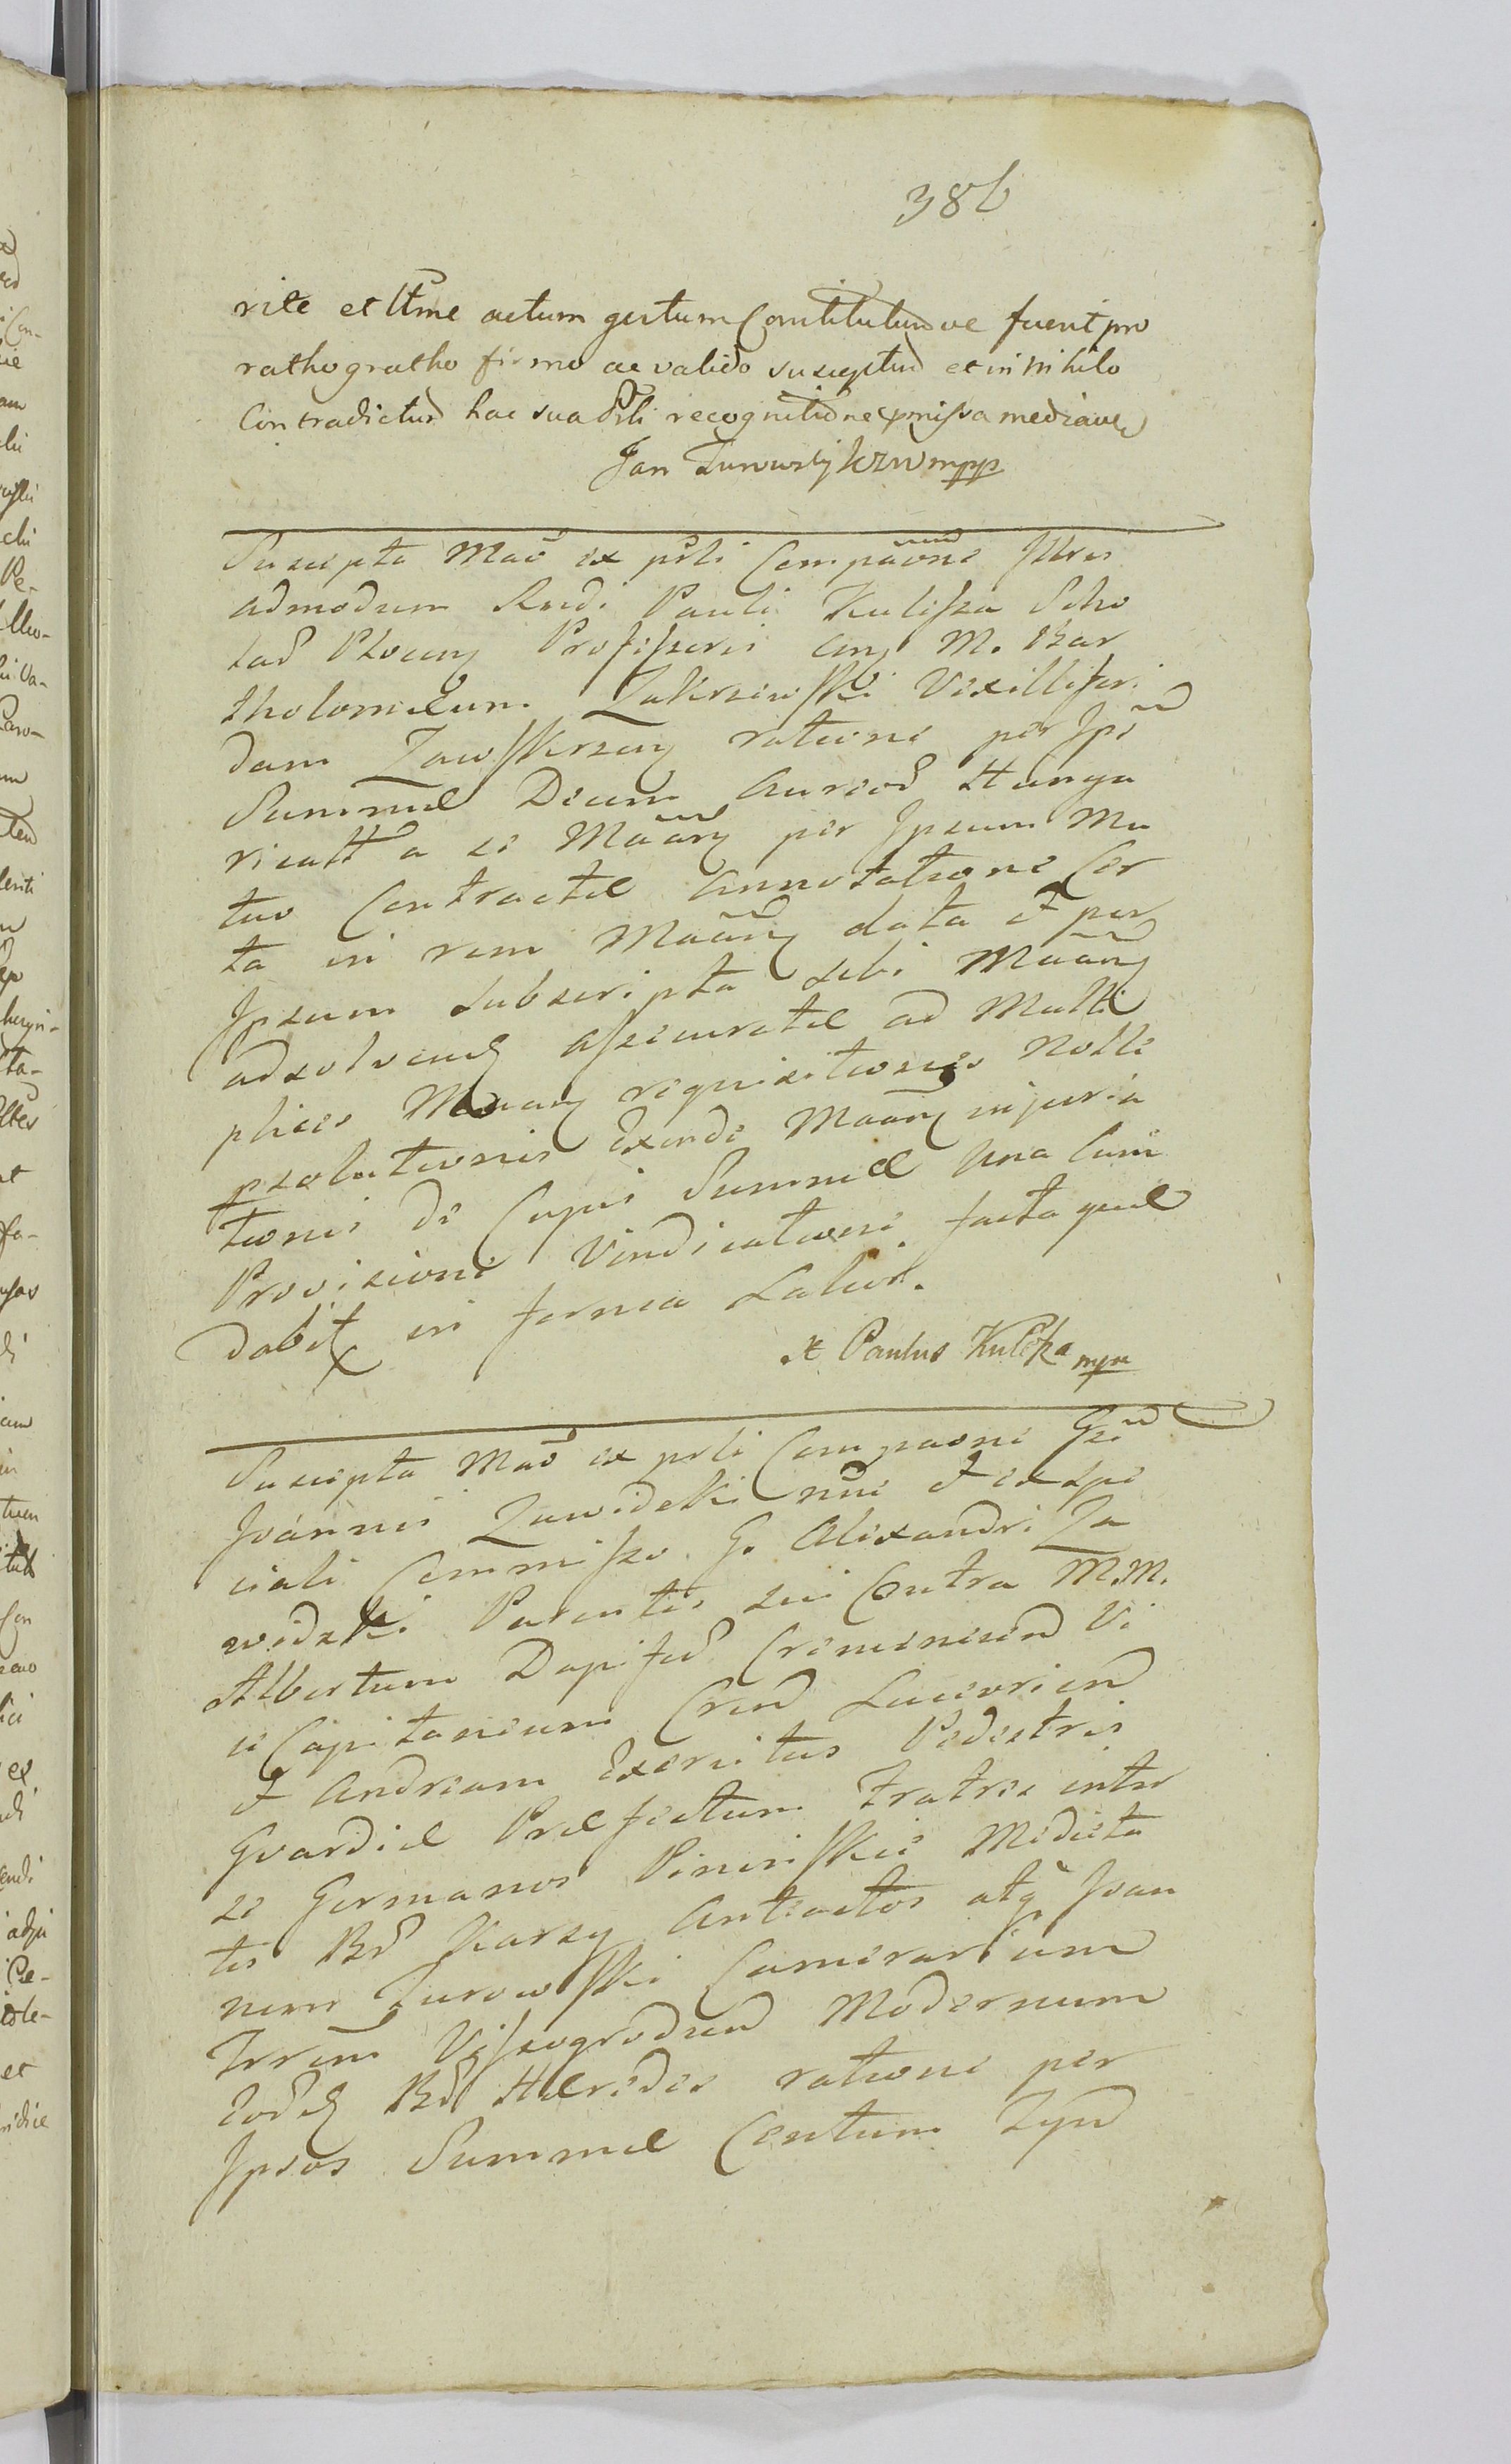 386
rite et lttme actum gestum Constitutumve fuerit pro
ratho gratho firmo ac valido suscepturum et in nihilo
Contradicturum hac sua prsti recognitione pmissa mediante
Jan Zurawsky kzw mpp
Suscepta Mao ex prsti Compaone Illtris
admodum Rndi Pauli Kuliska Scho
lar Plocen Professoris cum M. Bar
tholomaeum Zakrzewski Vexilliferi
dam Zawskrzen ratione per Ipm
Summae Decem Aureor Hunga
ricall a se Maan per Ipsum Mu
tuo Contractae Annotatione Cer
ta in rem Maan data et per
Ipsum subscripta sibi Maan
adsolvend assecuratae ad Multi
plices Maan requisitiones Nolle
psolutionis Exinde Maan injuria
tionis de Cujus Summae Una Cum
Provisione Vindicatione facta quae
dabit in termea Latior.
X Paulus Kuliska mpp
Suscepta Mao ex prsti Compaone Gsi
Joannis Zawidzki nne et ex spe
ciali Commisso G. Alexandri Za
widzki Parentis sui Contra M.M.
Albertum Dapifer Cremenecen Vi
ce Capitaneum Cren Luceorien
et Andream Exercitus Pedestris
Gvardiae Praefectum Fratres inter
se Germanos Pininskie Medieta
tis Br Karsy Antenatos atq Joan
nem Zurowski Camerarium
Trrem Vissogroden Modernum
Eord Br Haeredes ratione per
Ipsos Summae Centum Tyn